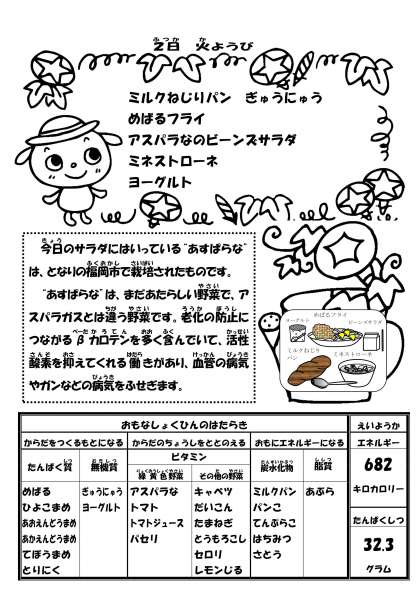 2日 火ようび
ミルクねじりパン ぎゅうにゅう
めばるフライ
アスパラなのビーンズサラダ
ミネストローネ
ヨーグルト
今日のサラダにはいっている“あすぱらな”
は、となりの福岡市で栽培されたものです。
“あすぱらな”は、まだあたらしい野菜で、ア
スパラガスとは違う野菜です。老化の防止に
つながるβカロテンを多く含んでいて、活性
酸素を抑えてくれる働きがあり、血管の病気
やガンなどの病気をふせぎます。
めばるフライ
ヨーグルト
ビーンズサラダ
ミルクねじり
パン
ミネストローネ
おもなしょくひんのはたらき
えいようか
からだをつくるもとになる からだのちょうしをととのえる おもにエネルギーになる エネルギー
たんぱく質 無機質 ビタミン 炭水化物 脂質 682
緑黄色野菜 その他の野菜
キロカロリー
めばる ぎゅうにゅう アスパラな キャベツ ミルクパン あぶら
ひよこまめ ヨーグルト トマト だいこん パンこ
あおえんどうまめ トマトジュース たまねぎ てんぷらこ たんぱくしつ
あかえんどうまめ パセリ とうもろこし はちみつ
てぼうまめ セロリ さとう 32.3
とりにく レモンじる グラム